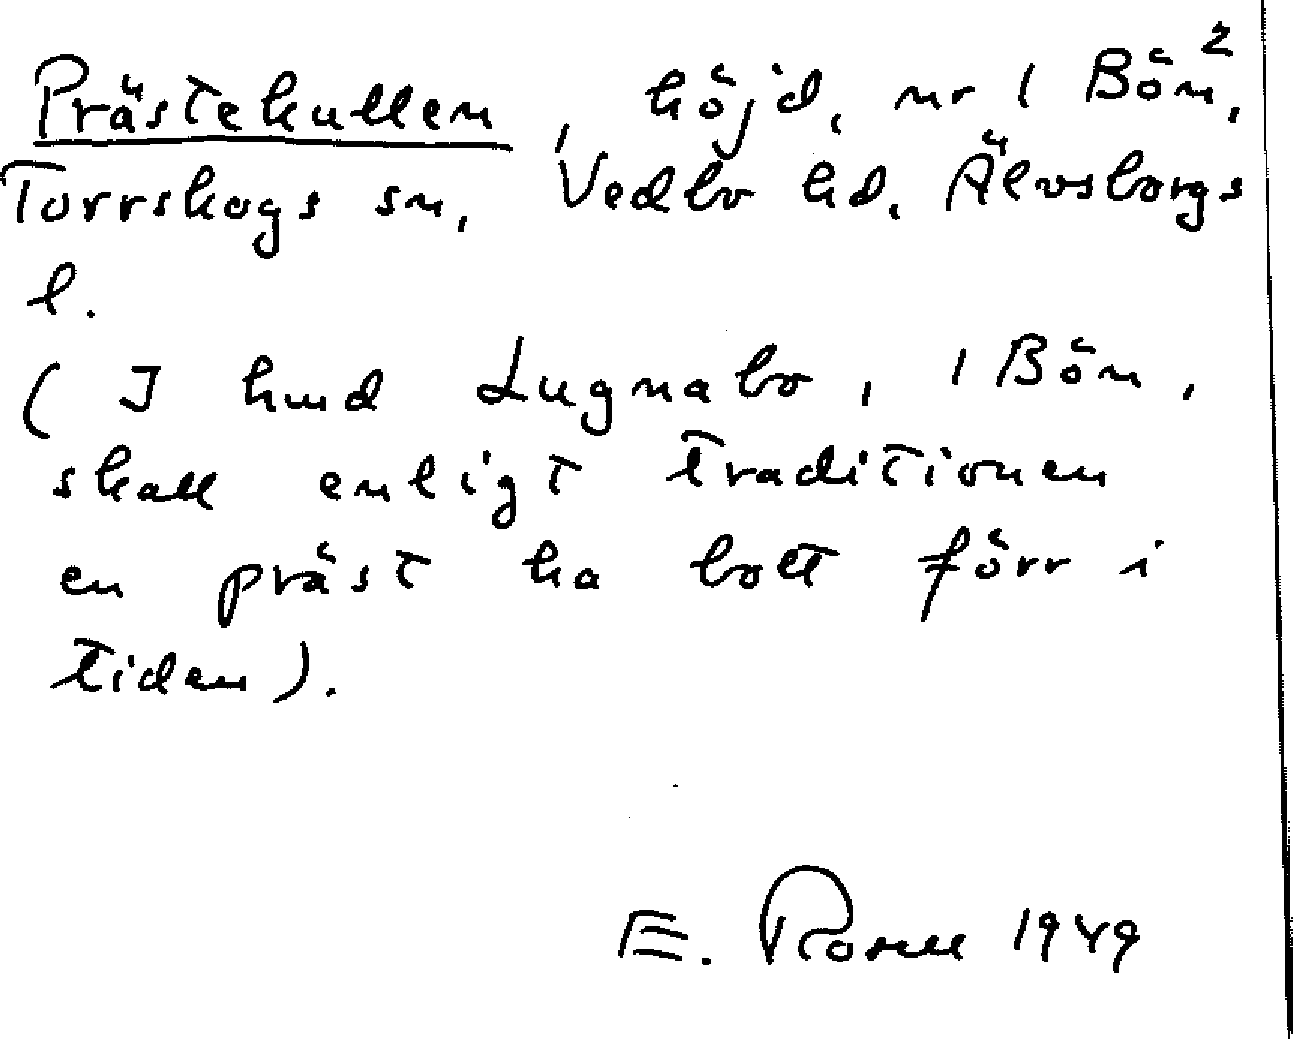 Prästekullen, höjd, nr 1 Bön²,
Torrskogs sn, Vedbo hd, Älvsborgs
l.
(I hmd Lugnabo, 1 Bön,
skall enligt traditionen
en präst ha bott förr i
tiden).
E. Rosell 1949